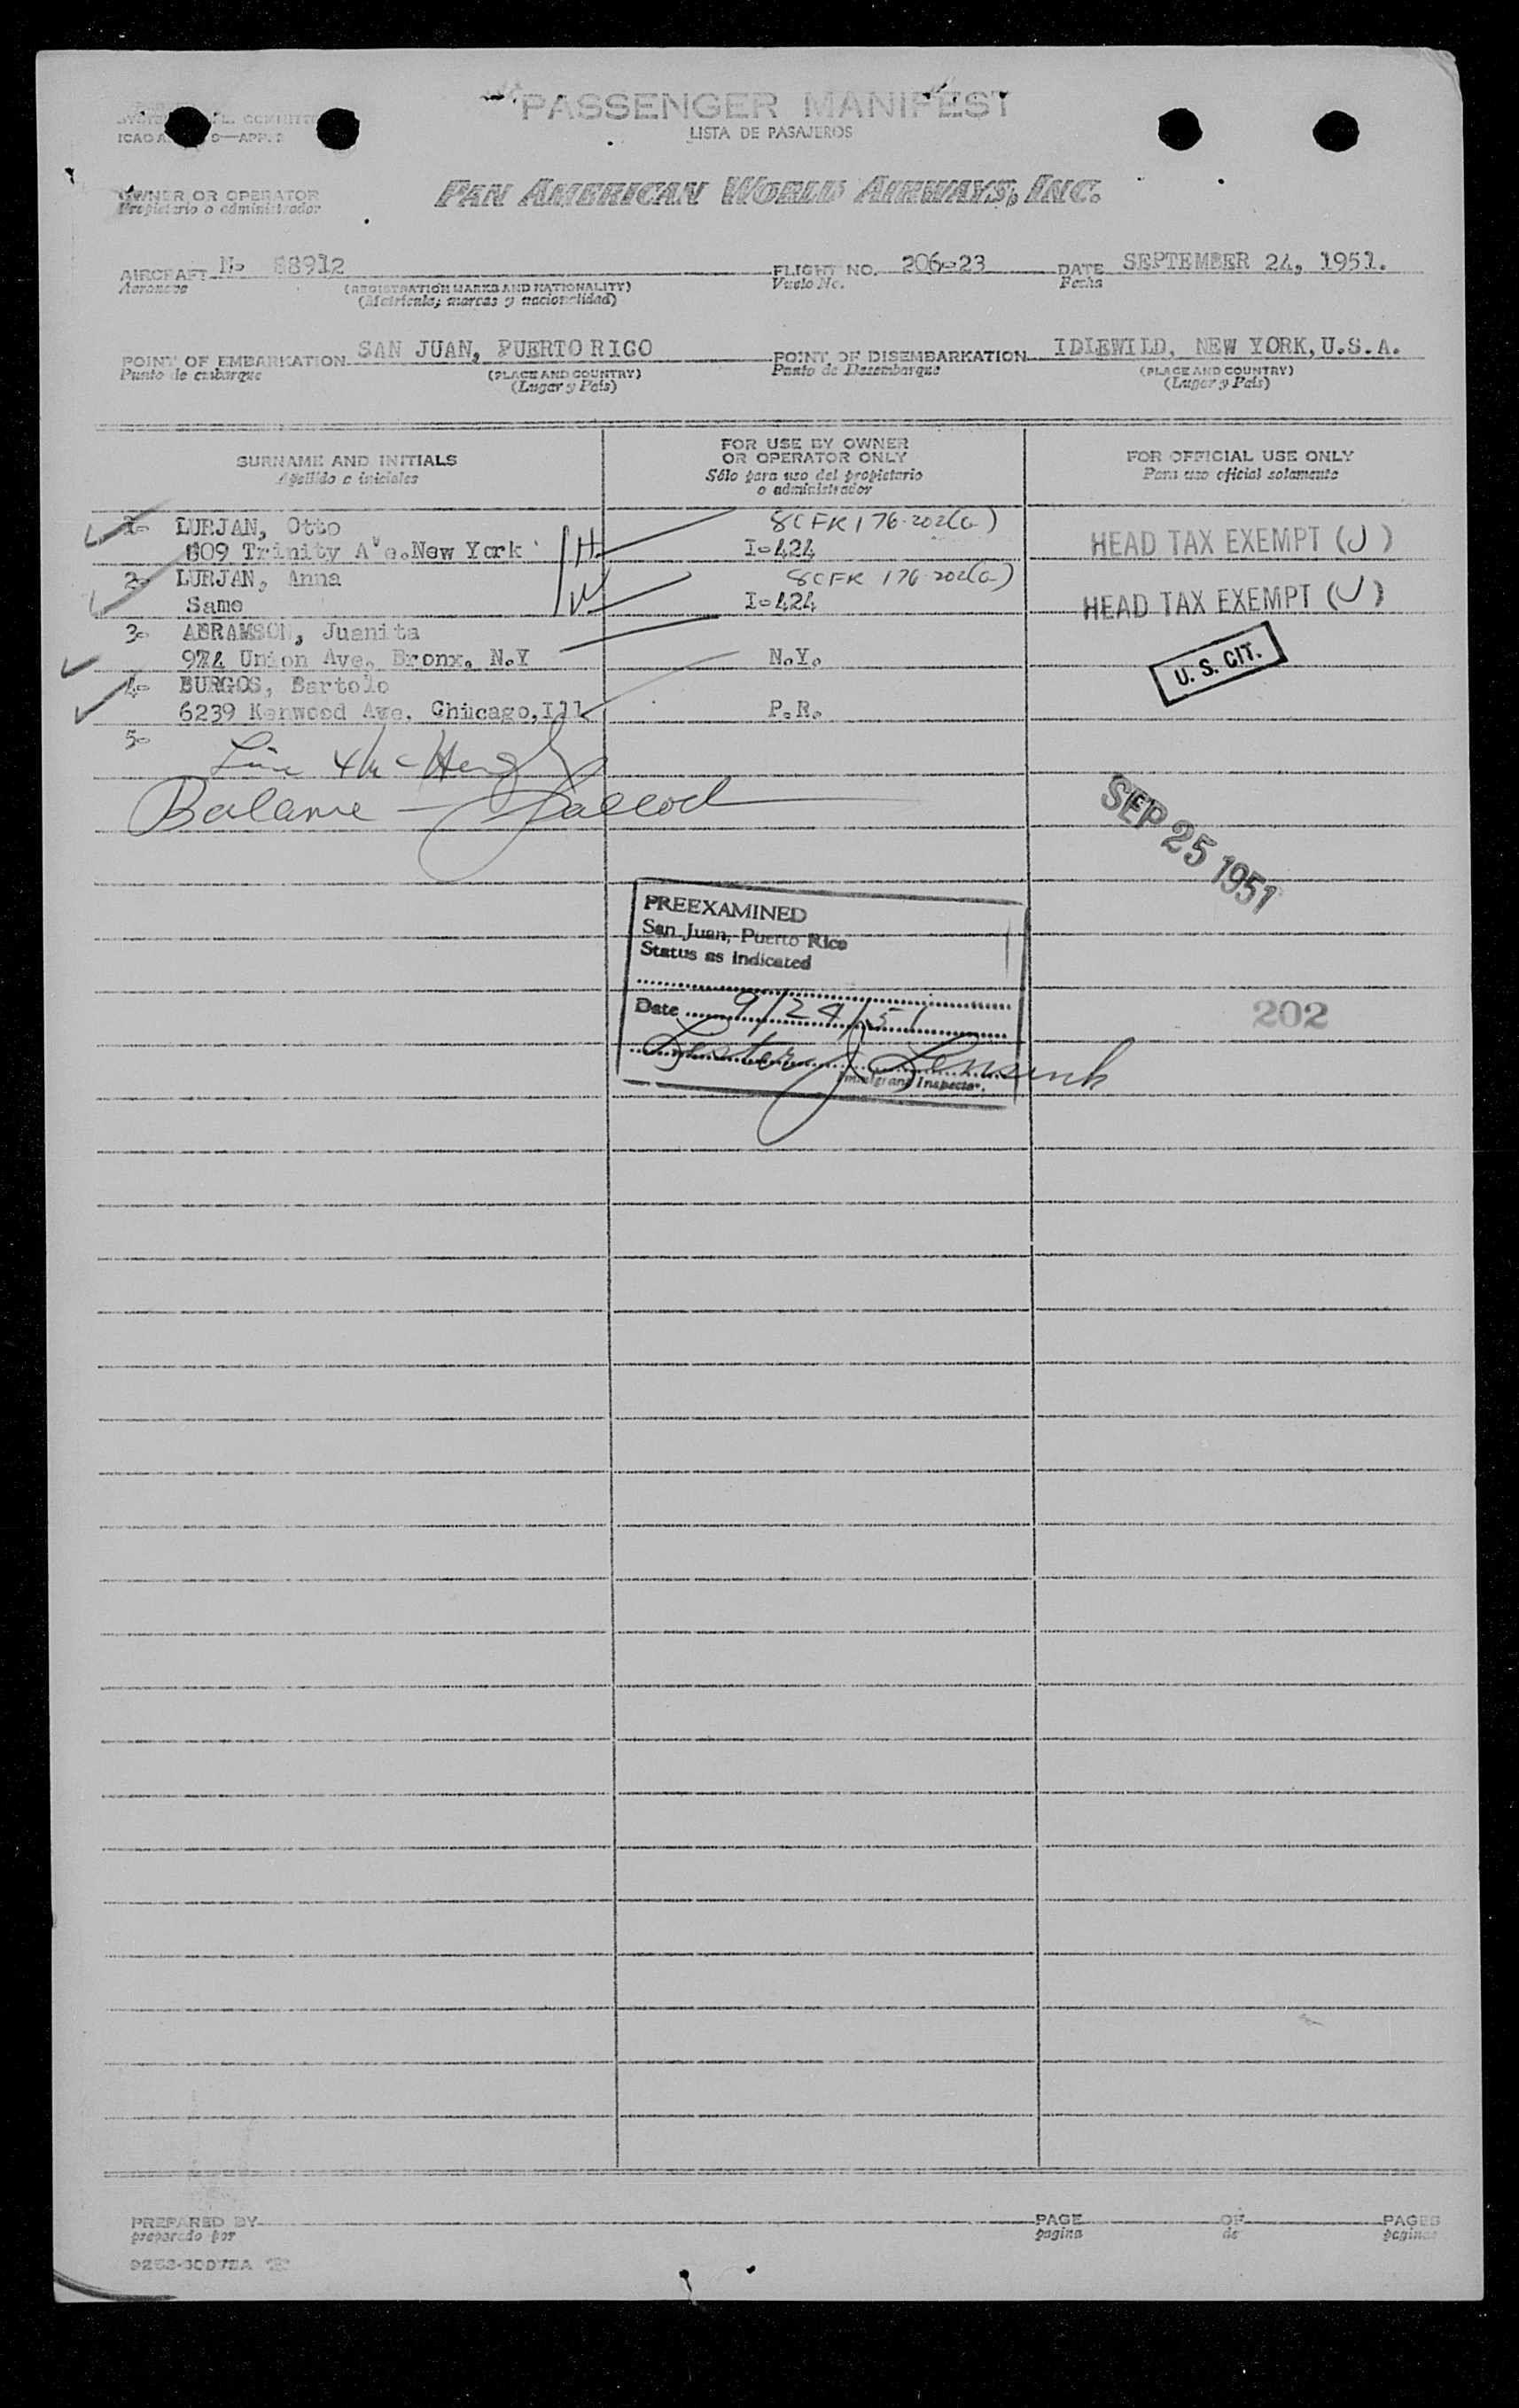 PASSENGER MANIFEST
LISTA DE PASAJEROS
ICAO A 9—APP. 2
OWNER OR OPERATOR
Propietario o administrador
PAN AMERICAN WORLD AIRWAYS, INC.
AIRCRAFT No 88912 FLIGHT NO. 206-23 DATE SEPTEMBER 24, 1951.
Aeronave (REGISTRATION MARKS AND NATIONALITY) Vuelo No. Fecha
(Matricula, marcas y nacionalidad)
POINT OF EMBARKATION SAN JUAN, PUERTO RICO POINT OF DISEMBARKATION IDLEWILD, NEW YORK, U.S.A.
Punto de embarque (PLACE AND COUNTRY) Punto de Desembarque (PLACE AND COUNTRY)
(Lugar y País) (Lugar y País)
SURNAME AND INITIALS FOR USE BY OWNER OR OPERATOR ONLY FOR OFFICIAL USE ONLY
Apellido e iniciales Sólo para uso del propietario o administrador Para uso oficial solamente
1- LURJAN, Otto 8CFR 176.202(a)
809 Trinity Ave. New York H I-424 HEAD TAX EXEMPT (U)
2- LURJAN, Anna 8CFR 176.202(a)
Same W I-424 HEAD TAX EXEMPT (U)
3- ABRAMSON, Juanita
974 Union Ave, Bronx, N.Y N.Y. U. S. CIT.
4- BURGOS, Bartolo
6239 Kenwood Ave. Chicago, Ill P.R.
5-
Line 4
Balance —
SEP 25 1951
PREEXAMINED
San Juan, Puerto Rico
Status as indicated
Date 9/24/51
Lester J
Immigrant Inspector.
202
PREPARED BY PAGE OF PAGES
preparado por pagina de paginas